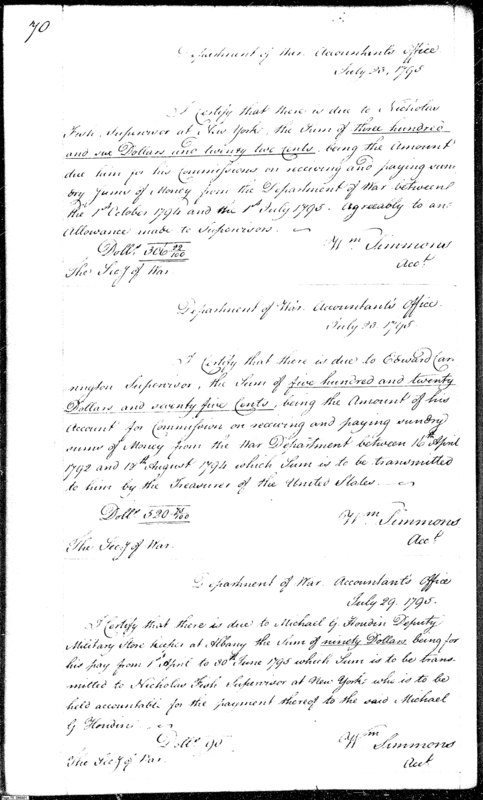 70
Department of War. Accountant's Office
July 23, 1795
I Certify that there is due to Nicholas
Fish, Supervisor at New York, the Sum of three hundred
and six Dollars and twenty two Cents, being the Amount
due him for his Commissions on receiving and paying sun
dry Sums of Money from the Department of War between
the 1st October 1794 and the 1st July 1795. Agreeably to an
Allowance made to Supervisors.
Dolls. 306 22/100
Wm Simmons
The Secy of War.
Acct.
Department of War. Accountant's Office.
July 23. 1795.
I Certify that there is due to Edward Car
rington Supervisor, the Sum of five hundred and twenty
Dollars and seventy five Cents, being the Amount of his
Account for Commission on receiving and paying sundry
sums of Money from the War Department between 16th April
1792 and 18th August 1794 which Sum is to be transmitted
to him by the Treasurer of the United States.
Dolls. 520 75/100
Wm Simmons
Acct.
The Secy of War.
Department of War. Accountant's Office
July 29. 1795.
I Certify that there is due to Michael G Houdin Deputy
Military Store keeper at Albany the Sum of ninety Dollars being for
his pay from 1st April to 30th June 1795 which Sum is to be trans
mitted to Nicholas Fish Supervisor at New York who is to be
held accountable for the payment thereof to the said Michael
G Houdin.
Dolls 90
Wm Simmons
The Secy of War
Acct